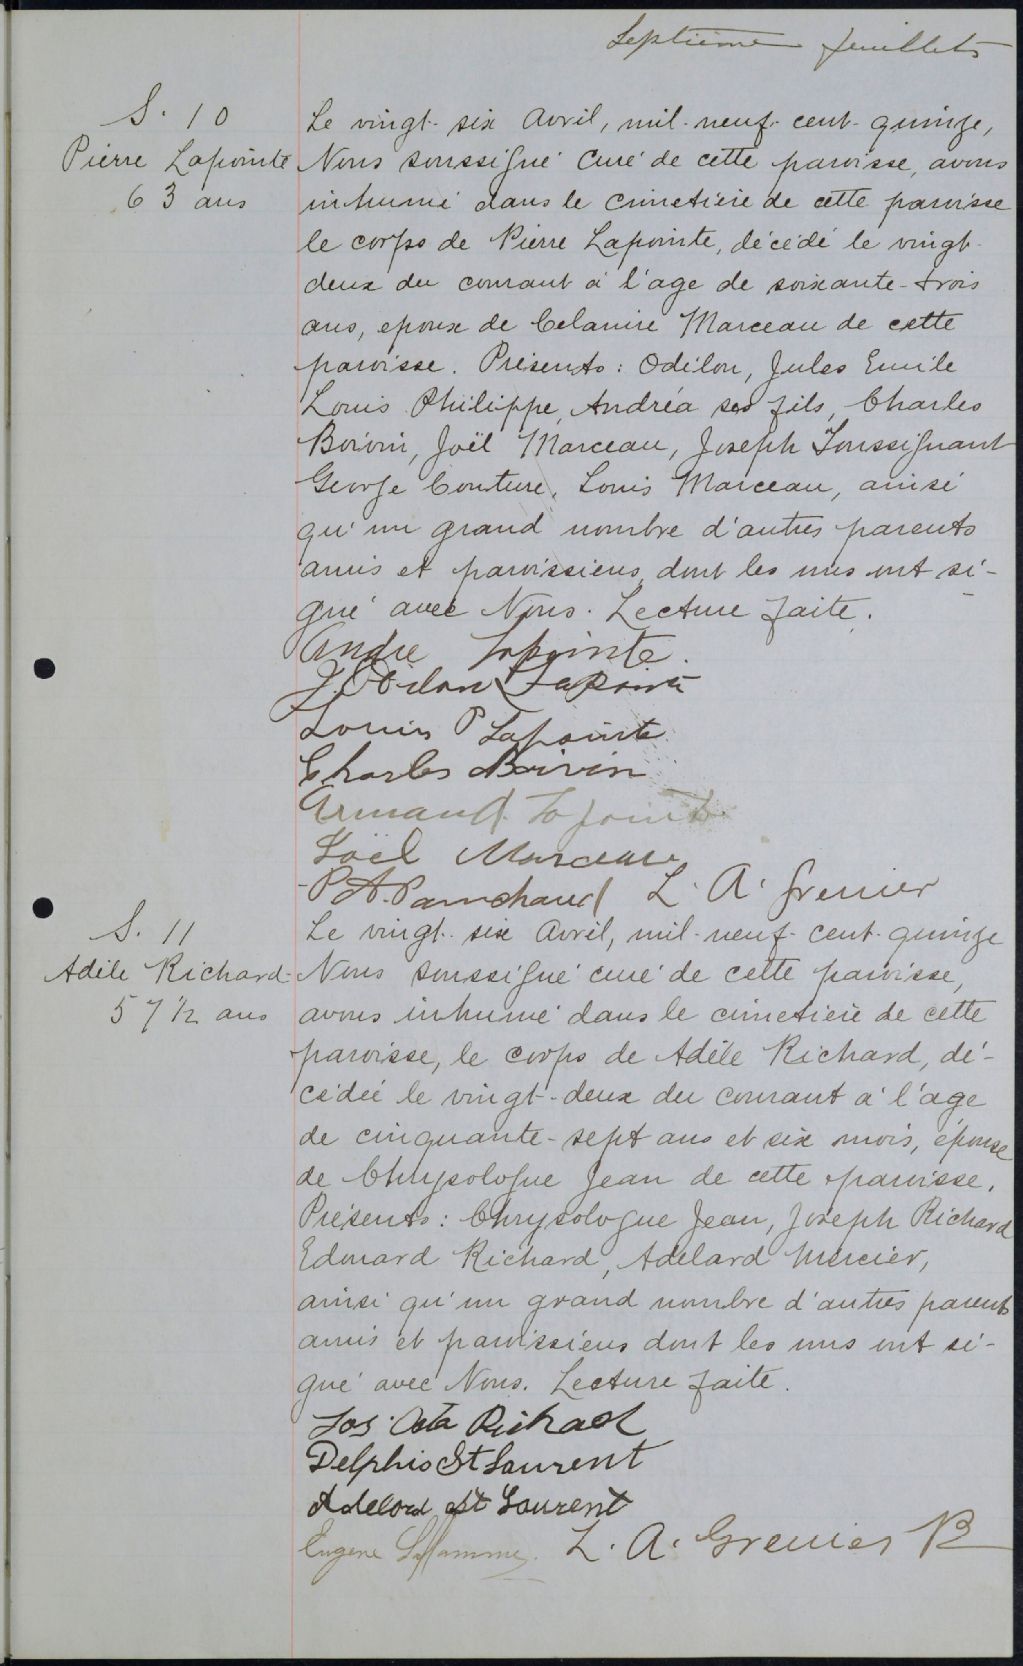 Septième feuillet
S. 10
Pierre Lapointe
63 ans
Le vingt-six Avril, mil-neuf-cent-quinze,
Nous soussigné curé de cette paroisse, avons
inhumé dans le cimetière de cette paroisse
le corps de Pierre Lapointe, décédé le vingt-
deux du courant à l'age de soixante-trois
ans, epoux de Celanire Marceau de cette
paroisse. Présents: Odilon, Jules Emile
Louis Philippe, Andréa ses fils, Charles
Boivin, Joël Marceau, Joseph Toussignant
George Couture, Louis Marceau, ainsi
qu'un grand nombre d'autres parents
amis et paroissiens, dont les uns ont si-
gné avec Nous. Lecture faite.
Andre Lapointe.
J. Odilon Lapointe
Louis P Lapointe
Charles Boivin
Armand Lapointe
Joël Marceau
P A. Panchaud L. A. Grenier
S. 11
Adèle Richard
57 1/2 ans
Le vingt-six Avril, mil-neuf-cent-quinze
Nous soussigné curé de cette paroisse,
avons inhumé dans le cimetière de cette
paroisse, le corps de Adèle Richard, dé-
cédée le vingt-deux du courant à l'age
de cinquante-sept ans et six mois, épouse
de Chrysologue Jean de cette paroisse.
Présents: Chrysologue Jean, Joseph Richard
Edouard Richard, Adelard Mercier,
ainsi qu'un grand nombre d'autres parents
amis et paroissiens dont les uns ont si-
gné avec Nous. Lecture faite.
Jos. Richad
Delphis St Laurent
Adelord St Laurent
Eugene Laflamme. L. A. Grenier